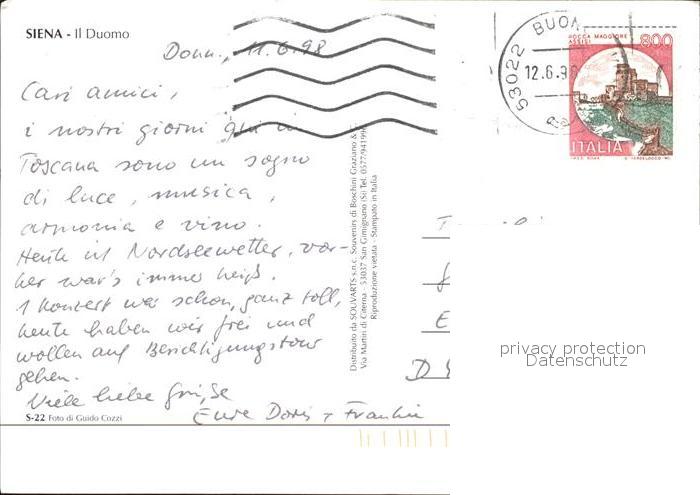 SIENA - Il Duomo
Donn., 11.6.98
Cari amici,
i nostri giorni qui in
Toscana sono un sogno
di luce, musica,
armonia e vino.
Heute ist Nordseewetter, vor-
her war's immer heiß.
1 Konzert war schon, ganz toll,
heute haben wir frei und
wollen auf Besichtigungstour
gehen.
Viele liebe Grüße
Eure Doris +
S-22 Foto di Guido Cozzi
Distribuito da SOUVARTS s.n.c. Souvenirs di Boschini Graziano &
Via Martiri di Citerna - 53037 San Gimignano (Si) Tel. 0577/941990
Riproduzione vietata - Stampato in Italia
53022 BUON
12.6.98
ROCCA MAGGIORE
ASSISI
800
ITALIA
D
privacy protection
Datenschutz